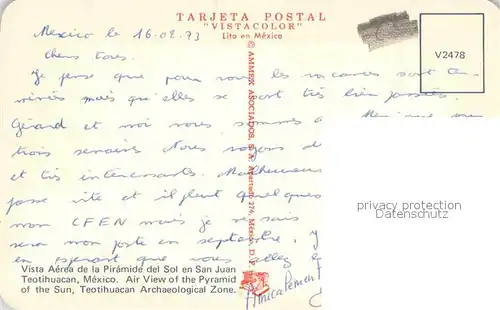 TARJETA POSTAL
"VISTACOLOR"
Lito en México
V2478
Mexico le 16.08.73
Chers tous.
Je pense que pour vous les vacances sont ter-
minées mais qu'elles se sont très bien passées.
Gérard et moi nous sommes à Mexique pour
trois semaines Nous voyons d
et très intéressantes. Malheureus
passe vite et il pleut quelques
mon CFEN mais je ne sais
sera mon poste en septembre, J
en espérant que vous allez
Amicalement
© AMMEX ASOCIADOS, S. A. 274, México, D. F.
Vista Aérea de la Pirámide del Sol en San Juan
Teotihuacan, México. Air View of the Pyramid
of the Sun, Teotihuacan Archaeological Zone.
privacy protection
Datenschutz